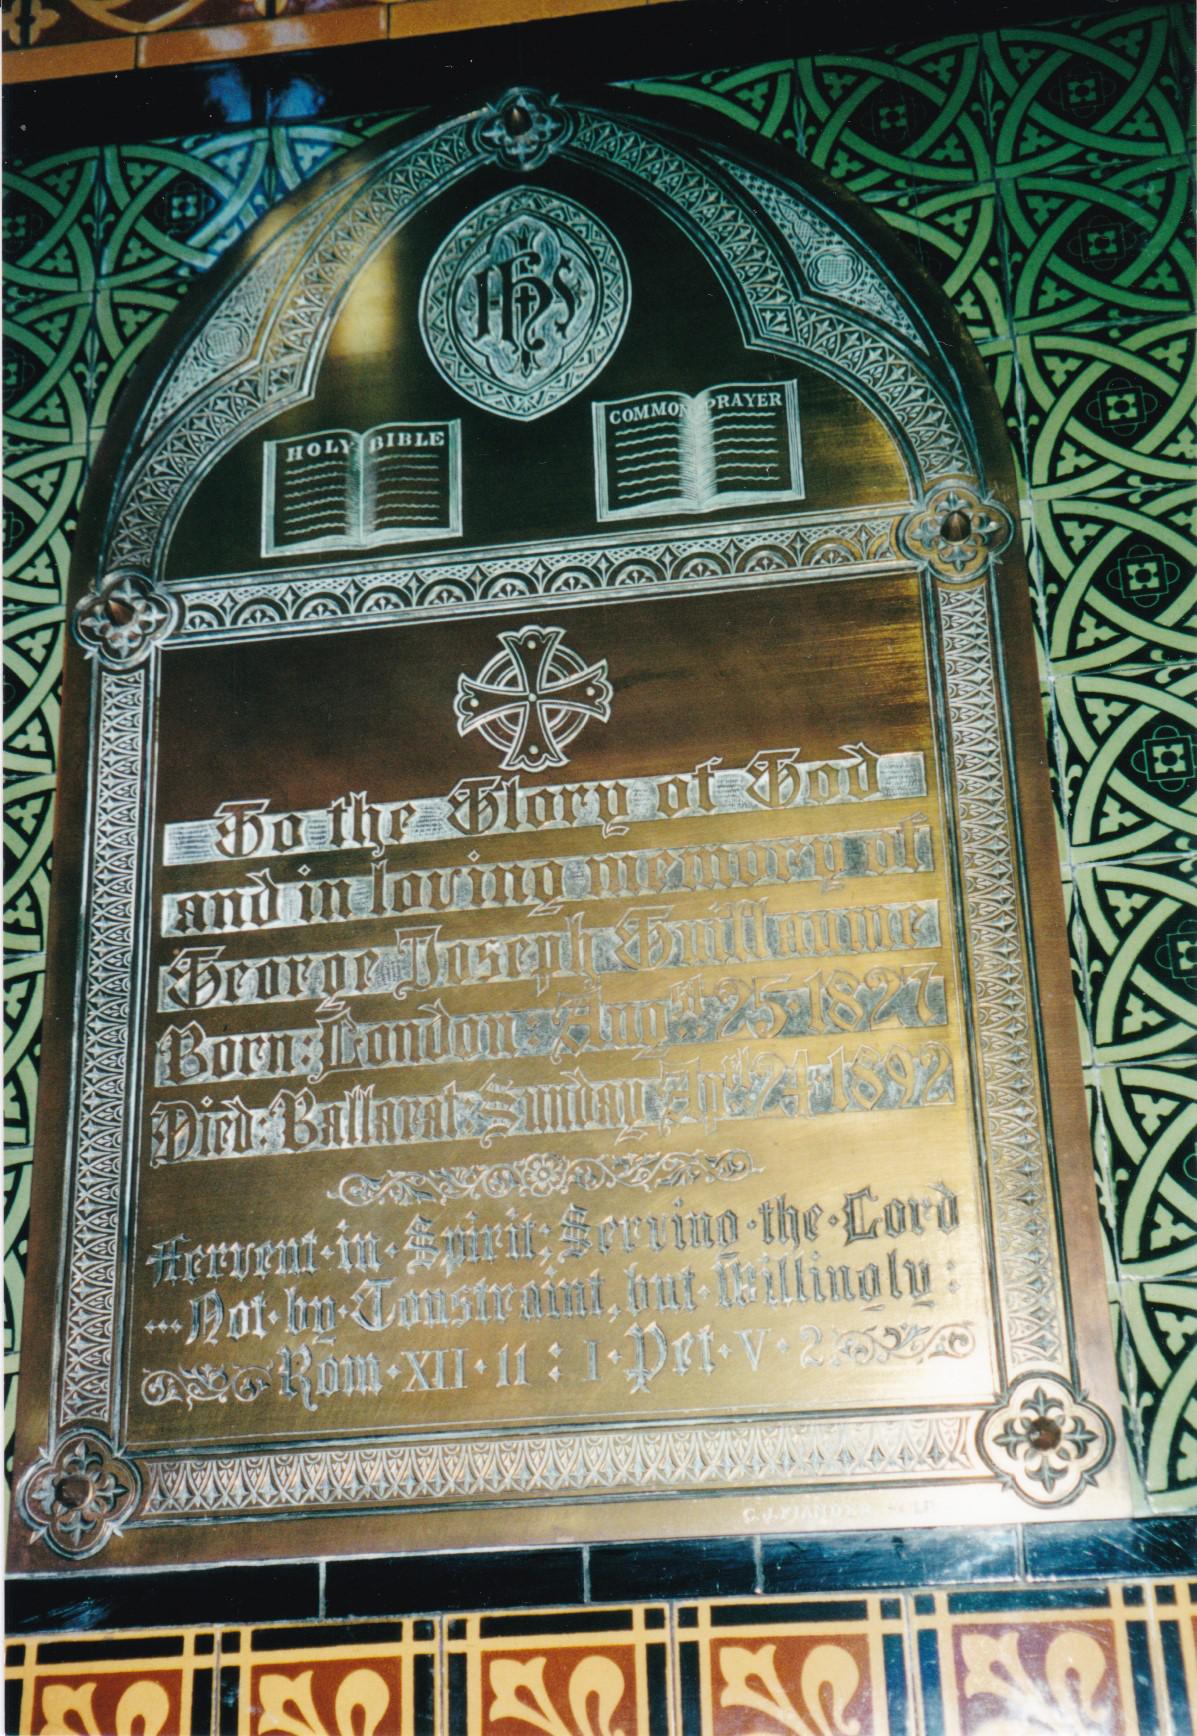 IHS
HOLY BIBLE
COMMON PRAYER
To the Glory of God
and in loving memory of
George Joseph Guillaume
Born: London Augst 25. 1827
Died: Ballarat. Sunday Aprl 24. 1892
Fervent · in · Spirit; Serving · the · Lord
... Not · by · Constraint, but · Willingly :
Rom · XII · 11 : 1 · Pet · V · 2.